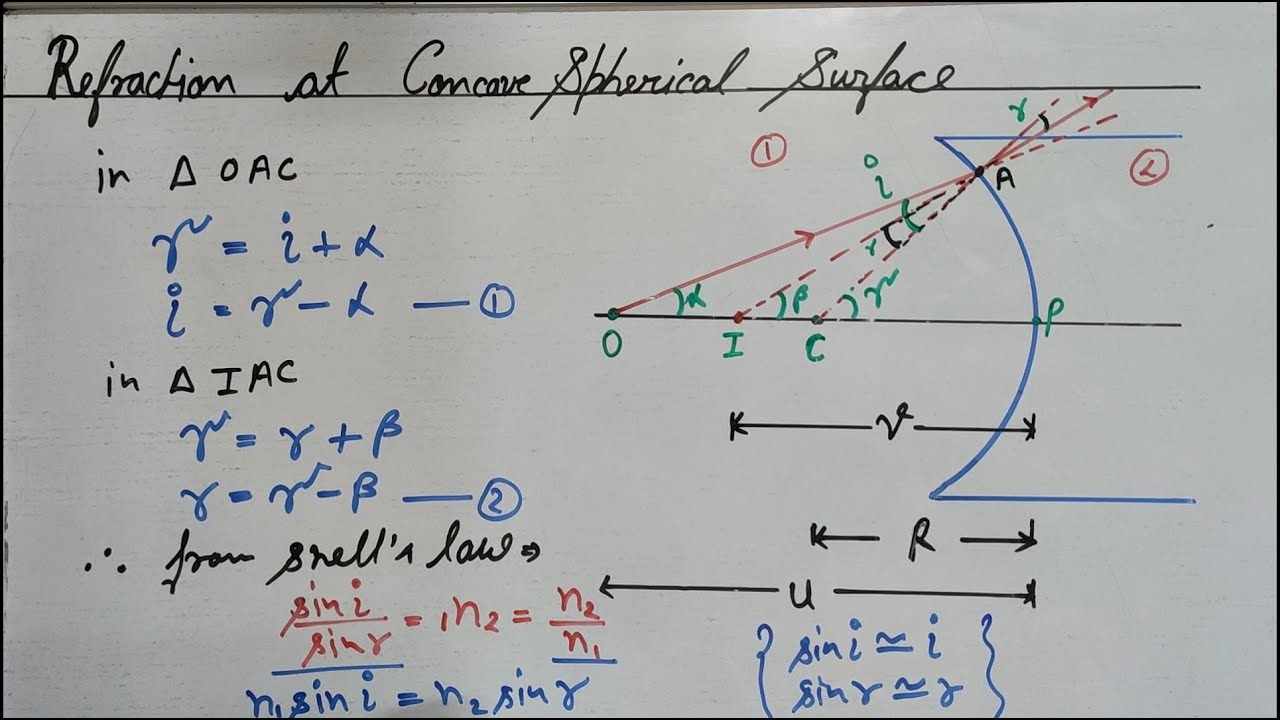 Refraction at Concave Spherical Surface
in Δ OAC
γ = i + α
i = γ - α — ①
in Δ IAC
γ = r + β
r = γ - β — ②
∴ from snell's law ⇒
sin i / sin r = ₁n₂ = n₂ / n₁
n₁ sin i = n₂ sin r
① ②
r
i
A
r
α β γ
O I C P
v
R
u
{ sin i ≃ i
sin r ≃ r }